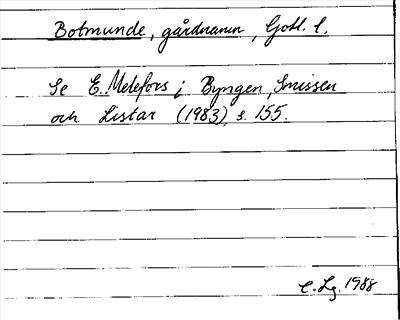 Botmunde, gårdnamn, Gotl. l.
Se E. Melefors i Byngen, Snissen
och Listar (1983), s. 155.
C. Lg. 1988